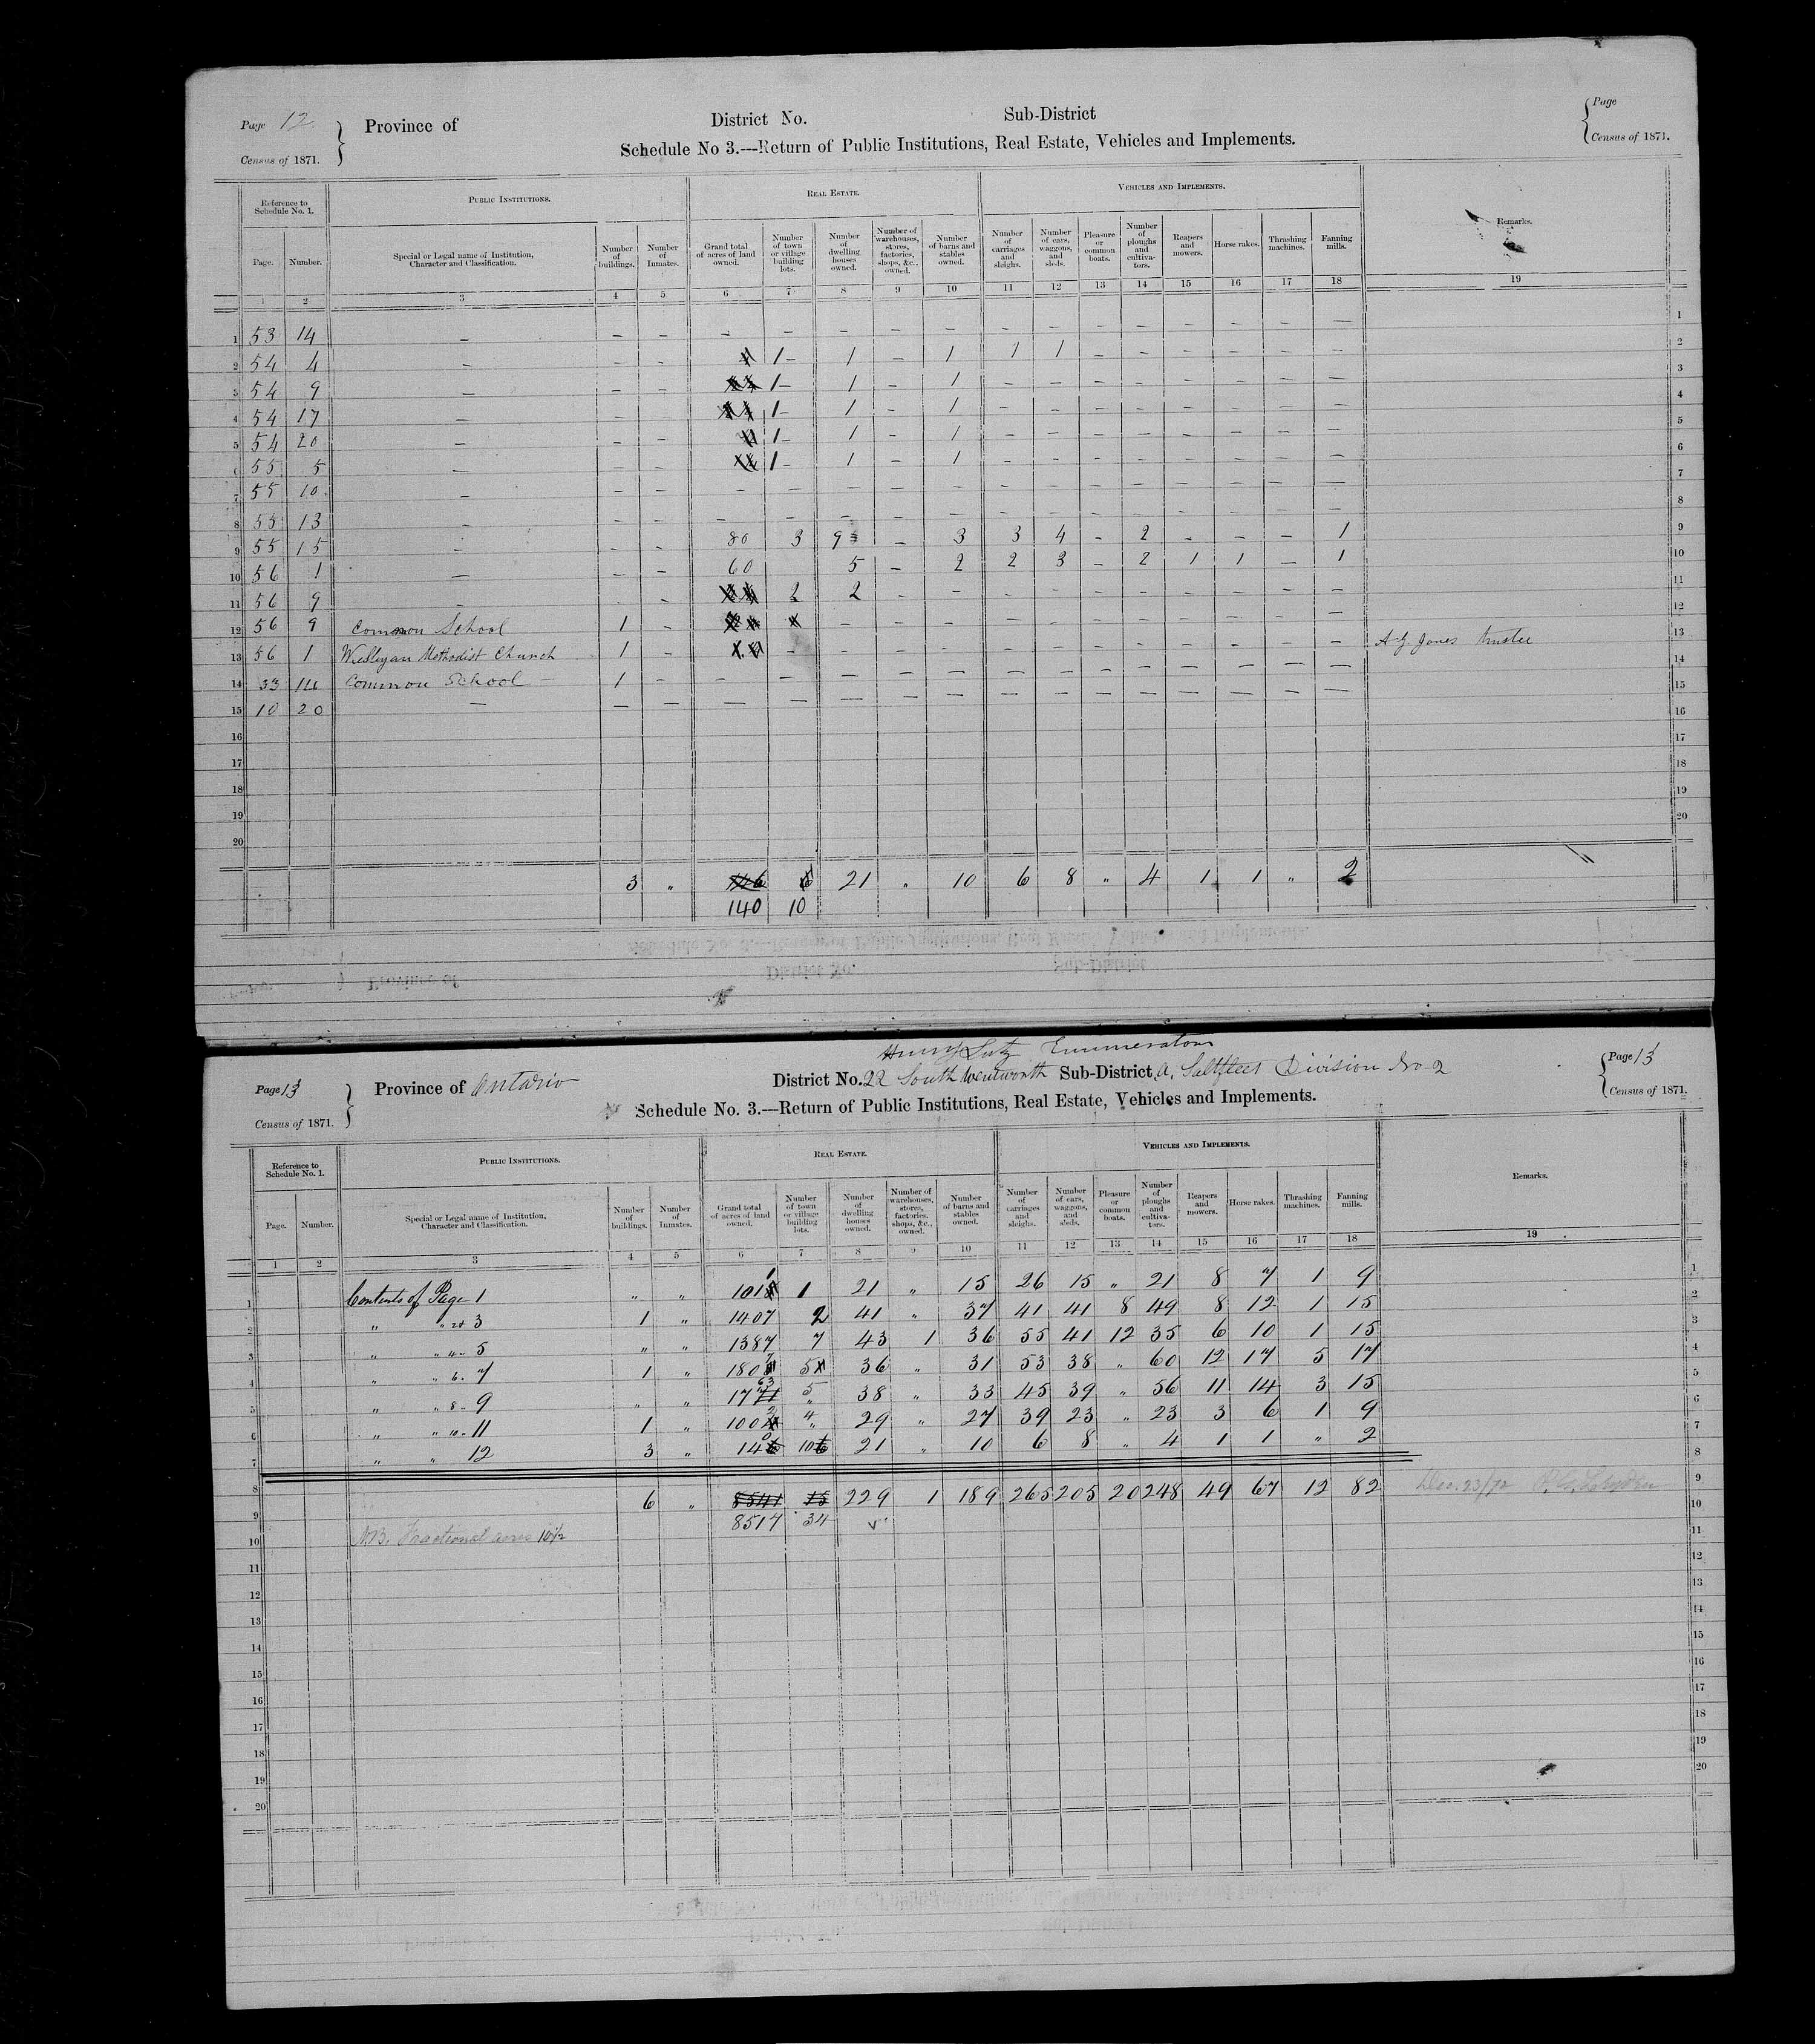 Page 12
Census of 1871.
Province of
District No.
Sub-District
Page
Census of 1871.
Schedule No 3.---Return of Public Institutions, Real Estate, Vehicles and Implements.
Reference to Schedule No. 1.
PUBLIC INSTITUTIONS.
REAL ESTATE.
VEHICLES AND IMPLEMENTS.
Remarks.
Page. Number. Special or Legal name of Institution, Character and Classification. Number of buildings. Number of Inmates. Grand total of acres of land owned. Number of town or village building lots. Number of dwelling houses owned. Number of warehouses, stores, factories, shops, &c., owned. Number of barns and stables owned. Number of carriages and sleighs. Number of cars, waggons, and sleds. Pleasure or common boats. Number of ploughs and cultiva-tors. Reapers and mowers. Horse rakes. Thrashing machines. Fanning mills.
1 2 3 4 5 6 7 8 9 10 11 12 13 14 15 16 17 18 19
1 53 14 — — — — — — — — — — — — — — — — 1
2 54 4 — — — 1 — 1 — 1 1 1 — — — — — — 2
3 54 9 — — — 1 — 1 — 1 — — — — — — — — 3
4 54 17 — — 1 — 1 — 1 — — — — — — — — 4
5 54 20 — — — 1 — 1 — 1 — — — — — — — — 5
6 55 5 — — — 1 — 1 — 1 — — — — — — — — 6
7 55 10 — — — — — — — — — — — — — — — — 7
8 55 13 — — — — — — — — — — — — — — — — 8
9 55 15 — — — 80 3 9 — 3 3 4 — 2 — — — 1 9
10 56 1 — — — 60 5 — 2 2 3 — 2 1 1 — 1 10
11 56 9 — — — 2 2 — — — — — — — — — — 11
12 56 9 Common School 1 — — — — — — — — — — — — 12
13 56 1 Weslyan Methodist Church 1 — — — — — — — — — — — — — A G Jones trustee 13
14 53 14 Common School — 1 — — — — — — — — — — — — — — 14
15 10 20 — — — — — — — — — — — — — — — — 15
16 16
17 17
18 18
19 19
20 20
3 " 146 6 21 " 10 6 8 " 4 1 1 " 2
140 10
Henry Lutz Enumerator
Page 13
Census of 1871.
Province of Ontario
District No. 22 South Wentworth Sub-District, a, Saltfleet Division No 2
Page 13
Census of 1871.
Schedule No. 3.---Return of Public Institutions, Real Estate, Vehicles and Implements.
Reference to Schedule No. 1.
PUBLIC INSTITUTIONS.
REAL ESTATE.
VEHICLES AND IMPLEMENTS.
Remarks.
Page. Number. Special or Legal name of Institution, Character and Classification. Number of buildings. Number of Inmates. Grand total of acres of land owned. Number of town or village building lots. Number of dwelling houses owned. Number of warehouses, stores, factories, shops, &c., owned. Number of barns and stables owned. Number of carriages and sleighs. Number of cars, waggons, and sleds. Pleasure or common boats. Number of ploughs and cultiva-tors. Reapers and mowers. Horse rakes. Thrashing machines. Fanning mills.
1 2 3 4 5 6 7 8 9 10 11 12 13 14 15 16 17 18 19
1 Contents of Page 1 " " 1011 1 21 " 15 26 15 " 21 8 7 1 9 1
2 " " 2d 3 1 " 1407 2 41 " 37 41 41 8 49 8 12 1 15 2
3 " " 4- 5 " " 1387 7 43 1 36 55 41 12 35 6 10 1 15 3
4 " " 6- 7 1 " 1807 5 36 " 31 53 38 " 60 12 17 5 17 4
5 " " 8- 9 " " 1763 5 38 " 33 45 39 " 56 11 14 3 15 5
6 " " 10- 11 1 " 1002 4 29 " 27 39 23 " 23 3 6 1 9 6
7 " " 12 3 " 140 10 21 " 10 6 8 " 4 1 1 " 2 7
8 8
9 6 " 8541 15 229 1 189 265 205 20 248 49 67 12 82 Dec. 23/72 9
8517 34
10 N.B. Fractional acres 10½ 10
11 11
12 12
13 13
14 14
15 15
16 16
17 17
18 18
19 19
20 20